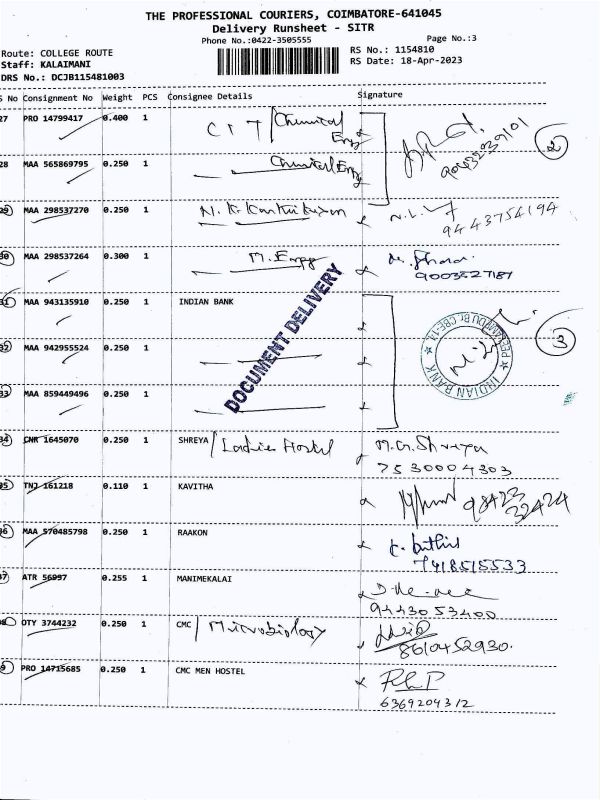 THE PROFESSIONAL COURIERS, COIMBATORE-641045
Delivery Runsheet - SITR
Phone No.:0422-3505555 Page No.:3
Route: COLLEGE ROUTE RS No.: 1154810
Staff: KALAIMANI RS Date: 18-Apr-2023
DRS No.: DCJB115481003
S No Consignment No Weight PCS Consignee Details Signature
27 PRO 14799417 0.400 1 CIT / Chemical Eng
9003239101
2
28 MAA 565869795 0.250 1 Chemical Eng
29 MAA 298537270 0.250 1
9443754194
30 MAA 298537264 0.300 1 M. Engg
9003527187
31 MAA 943135910 0.250 1 INDIAN BANK
3
32 MAA 942955524 0.250 1
DOCUMENT DELIVERY
INDIAN BANK
33 MAA 859449496 0.250 1
34 CNR 1645070 0.250 1 SHREYA / Ladies Hostel M.G.Shreya
7530004303
35 TNJ 161218 0.110 1 KAVITHA 98423
32424
36 MAA 570485798 0.250 1 RAAKON
7418515533
37 ATR 56997 0.255 1 MANIMEKALAI
9443053400
38 OTY 3744232 0.250 1 CMC / Microbiology
8610452930.
39 PRO 14715685 0.250 1 CMC MEN HOSTEL
6369204312